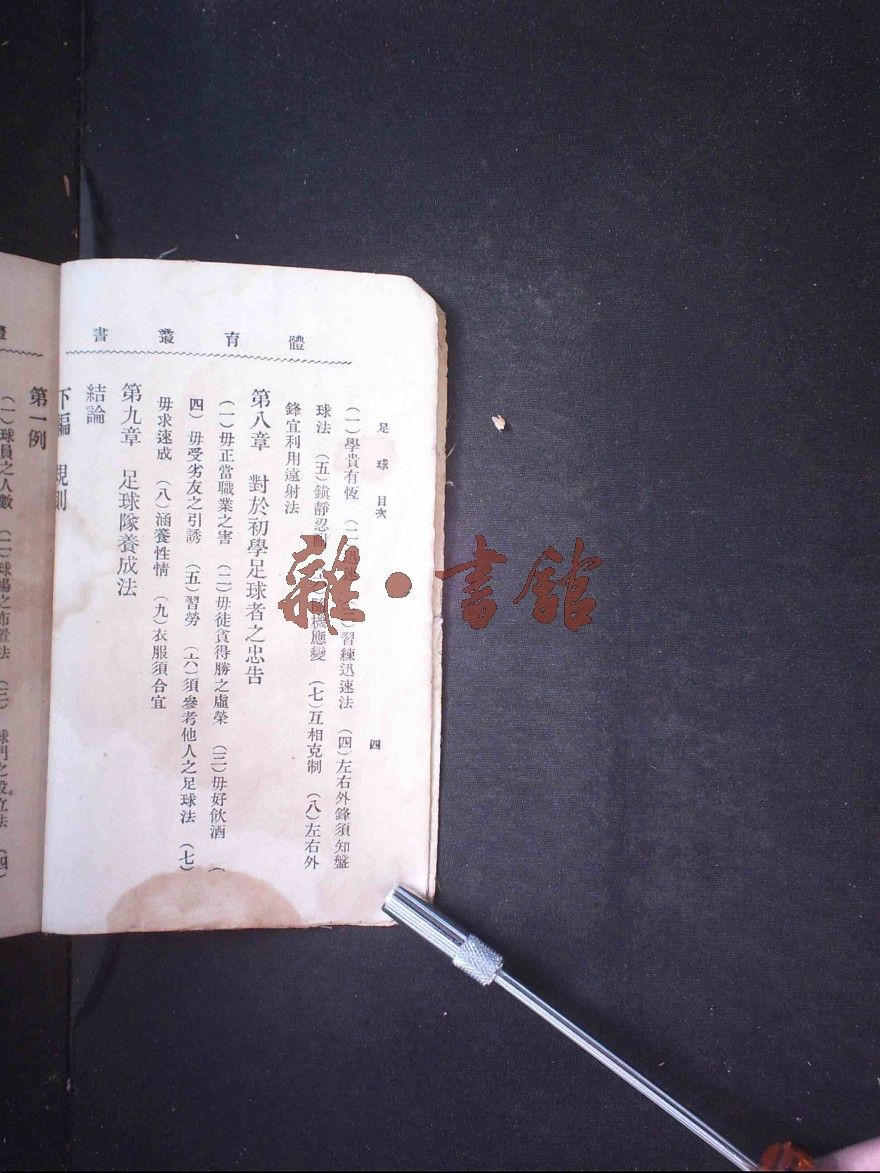 體育叢書
足球 目次
四
(一)學貴有恆 (二) 習練迅速法 (四)左右外鋒須知盤
球法 (五)鎮靜忍耐 隨機應變 (七)互相克制 (八)左右外
鋒宜利用遠射法
第八章 對於初學足球者之忠告
(一)毋正當職業之害 (二)毋徒貪得勝之虛榮 (三)毋好飲酒 (
四) 毋受劣友之引誘 (五)習勞 (六)須參考他人之足球法 (七)
毋求速成 (八)涵養性情 (九)衣服須合宜
第九章 足球隊養成法
結論
下編 規則
第一例
(一)球員之人數 (二)球場之布置法 (三) 球門之設立法 (四)
雜·書館